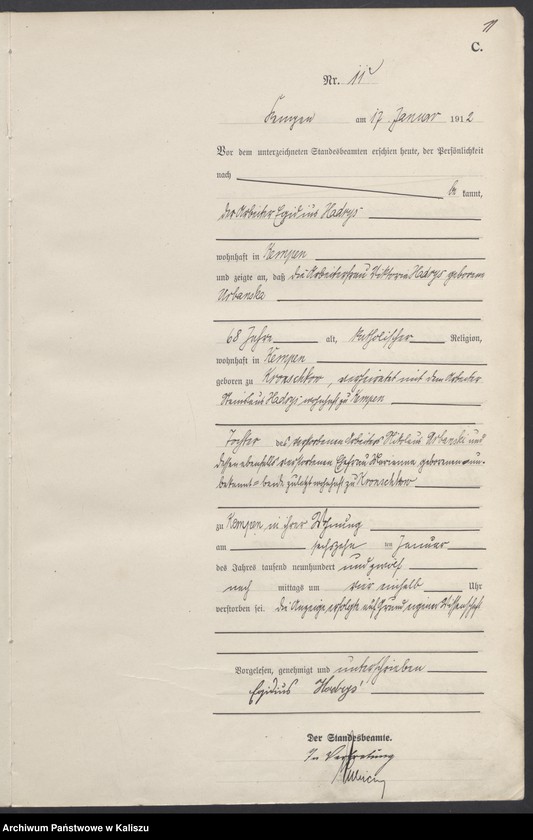 11
C.
Nr. 11
Kempen am 17 Januar 1912
Vor dem unterzeichneten Standesbeamten erschien heute, der Persönlichkeit
nach
be kannt,
der Arbeiter Egidius Hadrys
wohnhaft in Kempen
und zeigte an, daß die Arbeiterfrau Viktoria Hadrys geborene
Urbanska
68 Jahre alt, katholischer Religion,
wohnhaft in Kempen
geboren zu verheiratet mit dem Arbeiter
Hadrys wohnhaft zu Kempen
Tochter des verstorbenen Arbeiters Nikolaus Urbanski und
dessen ebenfalls verstorbenen Ehefrau Marianna geborenen – un-
bekannt – beide zuletzt wohnhaft zu
zu Kempen in ihrer Wohnung
am sechszehn ten Januar
des Jahres tausend neunhundert und zwölf
nach mittags um vier einhalb Uhr
verstorben sei. Die Anzeige erfolgte auf Grund eigener Wissenschaft
Vorgelesen, genehmigt und unterschrieben
Egidius Hadryś
Der Standesbeamte.
In Vertretung
Archiwum Państwowe w Kaliszu